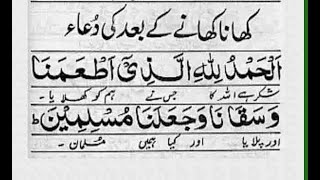 کھانا کھانے کے بعد کی دُعاء
اَلْحَمْدُ لِلّٰهِ الَّذِیْٓ اَطْعَمَنَا
شکر ہے اللہ کا جس نے ہم کو کھلایا -
وَسَقَانَا وَجَعَلَنَا مُسْلِمِیْنَ ط
اور پلایا اور کیا ہمیں مسلمان -